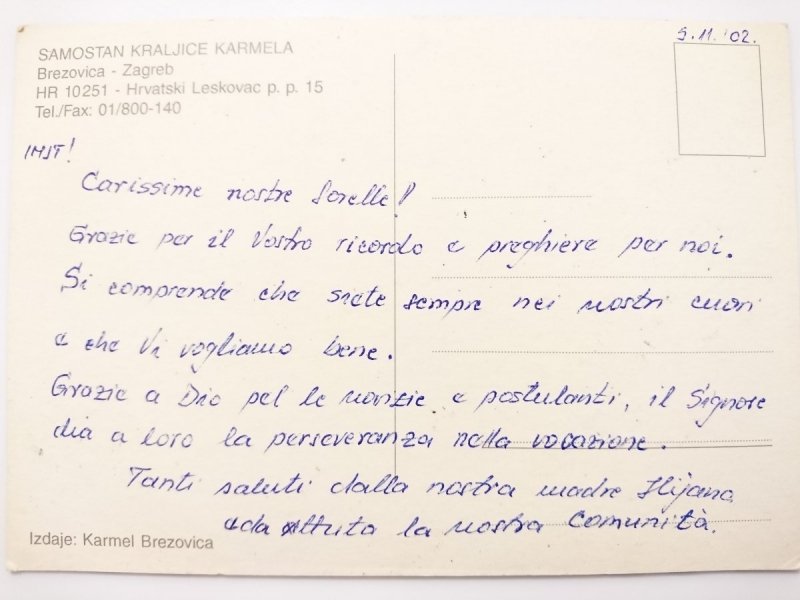 SAMOSTAN KRALJICE KARMELA
Brezovica - Zagreb
HR 10251 - Hrvatski Leskovac p. p. 15
Tel./Fax: 01/800-140
5.11.'02.
IHST!
Carissime nostre Sorelle!
Grazie per il Vostro ricordo e preghiere per noi.
Si comprende che siete sempre nei nostri cuori
e che Vi vogliamo bene.
Grazie a Dio pel le novizie e postulanti, il Signore
dia a loro la perseveranza nella vocazione.
Tanti saluti dalla nostra madre Ilijana
e da tutta la nostra Comunità.
Izdaje: Karmel Brezovica